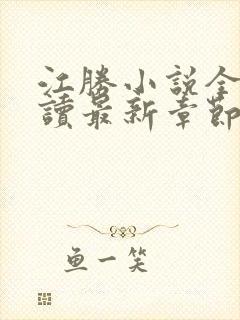 江勝小説全
讀最新章節
鱼一笑